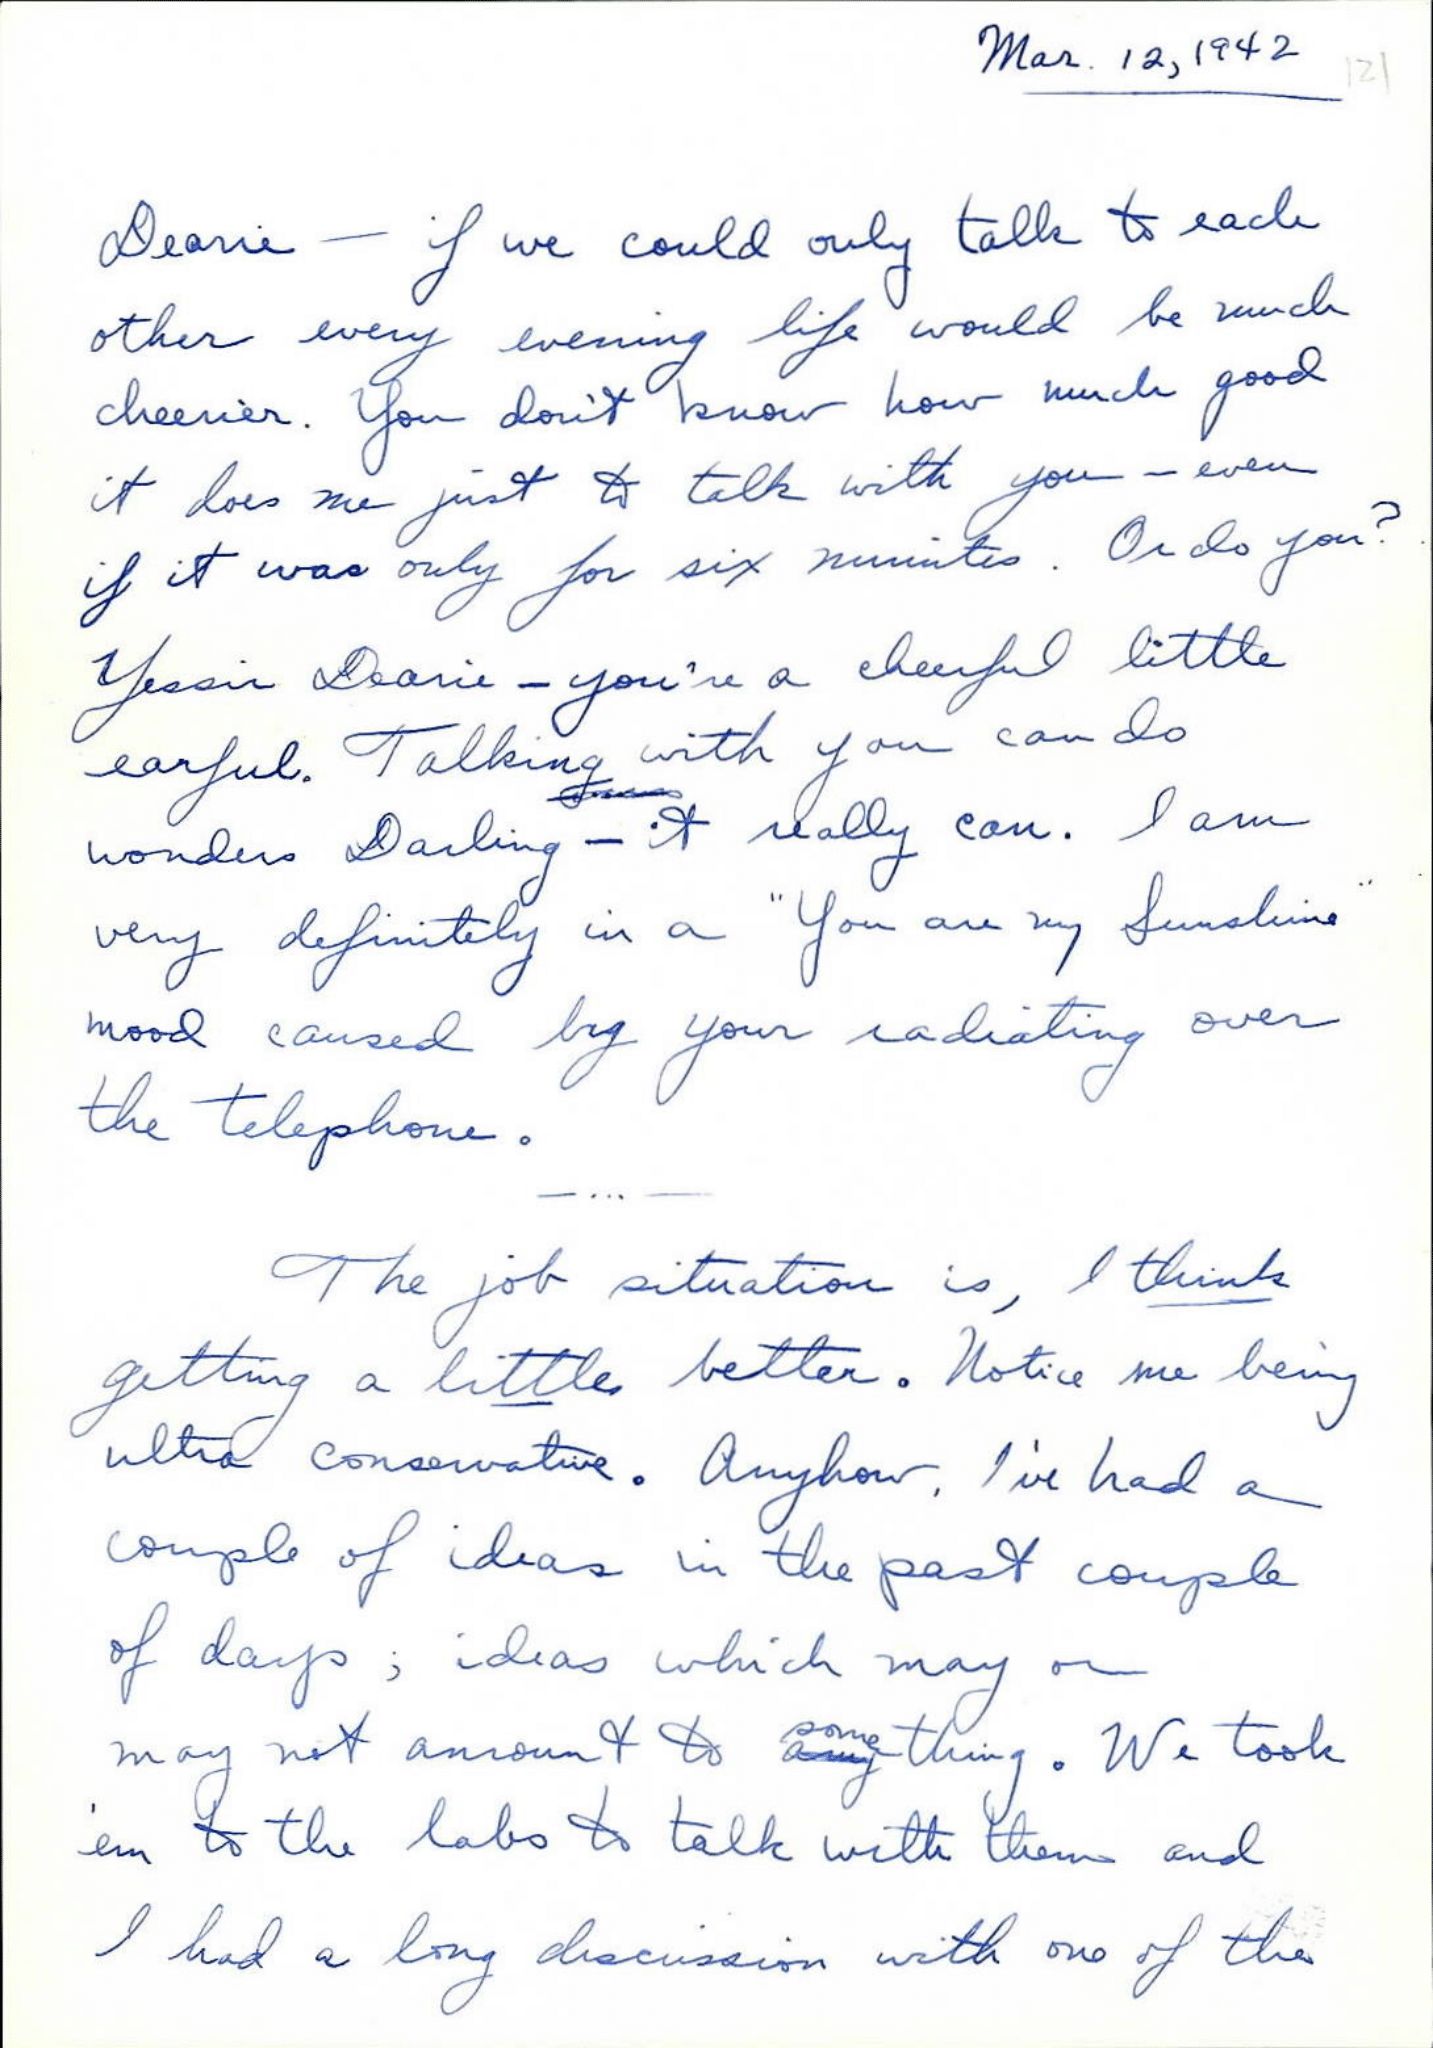 Mar. 12, 1942
121
Dearie — if we could only talk to each
other every evening life would be much
cheerier. You don't know how much good
it does me just to talk with you — even
if it was only for six minutes. Or do you?
Yessir Dearie — you're a cheerful little
earful. Talking with you can do
wonders Darling — it really can. I am
very definitely in a "You are my Sunshine"
mood caused by your radiating over
the telephone.
— ... —
The job situation is, I think
getting a little better. Notice me being
ultra conservative. Anyhow, I've had a
couple of ideas in the past couple
of days; ideas which may or
some
may not amount to anything. We took
'em to the labs to talk with them and
I had a long discussion with one of the